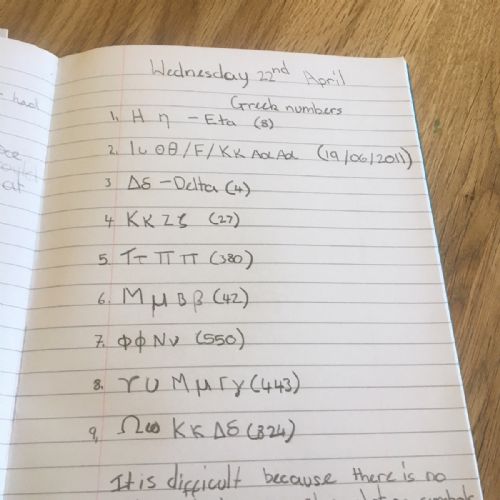 Wednesday 22nd April
Greek numbers
1. Η η - Eta (8)
2. Ιυ Θθ/F/Κκ Αα Αα (19/06/2011)
3 Δδ - Delta (4)
4 Κκ Ζζ (27)
5. Ττ Π π (380)
6. Μ μ Β β (42)
7. Φ φ Ν ν (550)
8. ϒ υ Μ μ Γ γ (443)
9, Ω ω Κ κ Δ δ (824)
It is difficult because there is no
had
at